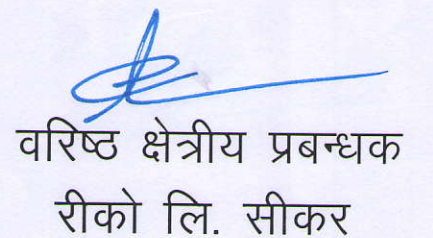 वरिष्ठ क्षेत्रीय प्रबन्धक
रीको लि. सीकर